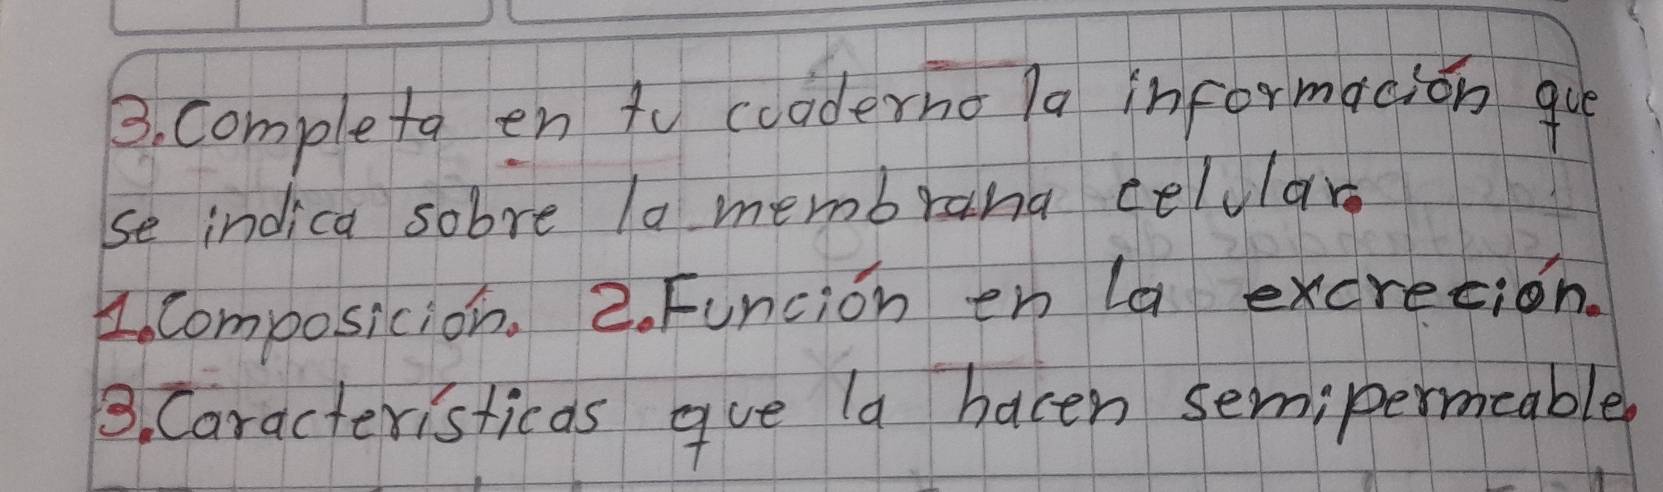 3. Completa en tu cuaderno la información que
se indica sobre la membrana celular.
1. Composición. 2. Función en la excreción.
3. Características que la hacen semipermeable.